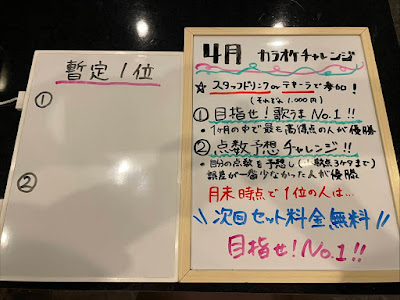 暫定1位
①
②
4月 カラオケチャレンジ
☆ スタッフドリンク or テキーラで参加!
(それぞれ 1.000円)
① 目指せ!歌うまNo.1!!
・1ヶ月の中で最も高得点の人が優勝
② 点数予想チャレンジ!!
・自分の点数を予想し(小数点3ケタまで)
誤差が一番少なかった人が優勝
月末時点で1位の人は…
\\ 次回セット料金無料 //
目指せ!No.1!!